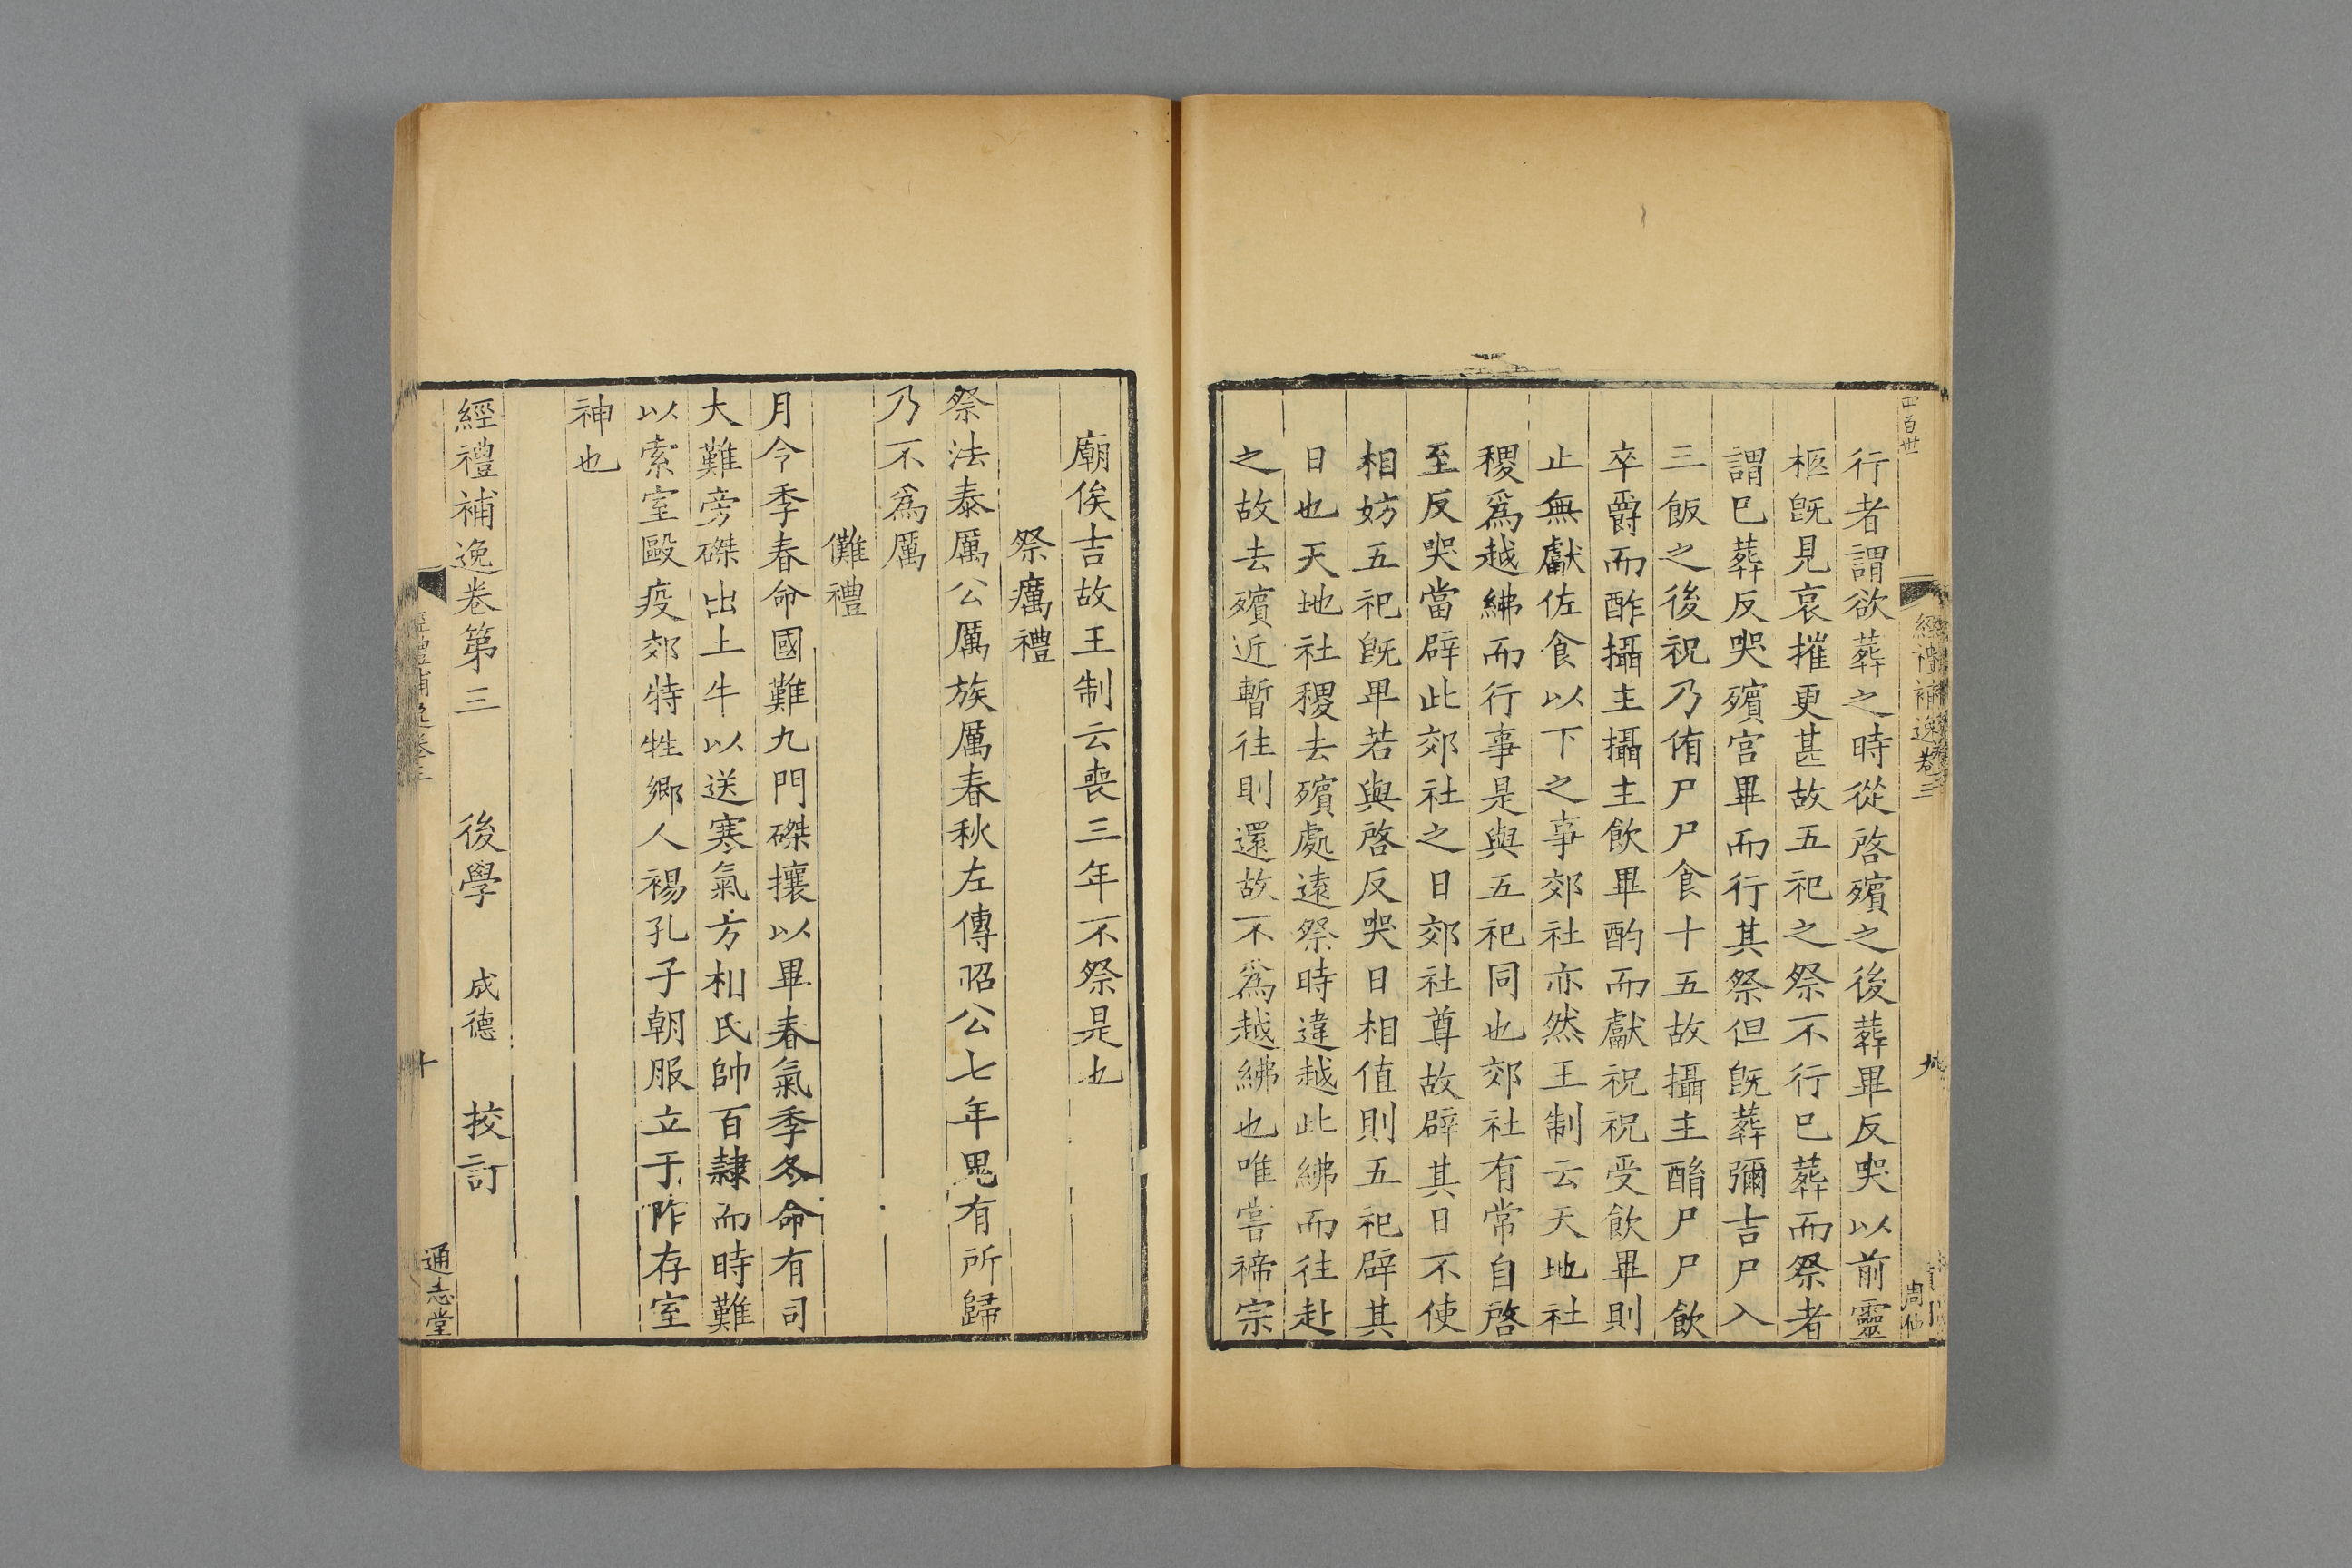 四百廿
經禮補逸卷三
九
周仙
行者謂欲葬之時從啓殯之後葬畢反哭以前靈
柩旣見哀摧更甚故五祀之祭不行巳葬而祭者
謂巳葬反哭殯宫畢而行其祭但旣葬彌吉尸入
三飯之後祝乃侑尸尸食十五故攝主酳尸尸飲
卒爵而酢攝主攝主飲畢酌而獻祝祝受飲畢則
止無獻佐食以下之事郊社亦然王制云天地社
稷爲越紼而行事是與五祀同也郊社有常自啓
至反哭當辟此郊社之日郊社尊故辟其日不使
相妨五祀旣卑若與啓反哭日相值則五祀辟其
日也天地社稷去殯處遠祭時違越此紼而往赴
之故去殯近暫往則還故不爲越紼也唯嘗禘宗
廟俟吉故王制云喪三年不祭是也
祭癘禮
祭法泰厲公厲族厲春秋左傳昭公七年鬼有所歸
乃不爲厲
儺禮
月令季春命國難九門磔攘以畢春氣季冬命有司
大難旁磔出土牛以送寒氣方相氏帥百隸而時難
以索室毆疫郊特牲鄉人裼孔子朝服立于阼存室
神也
經禮補逸卷第三 後學 成德 挍訂
經禮補逸卷三
十
通志堂